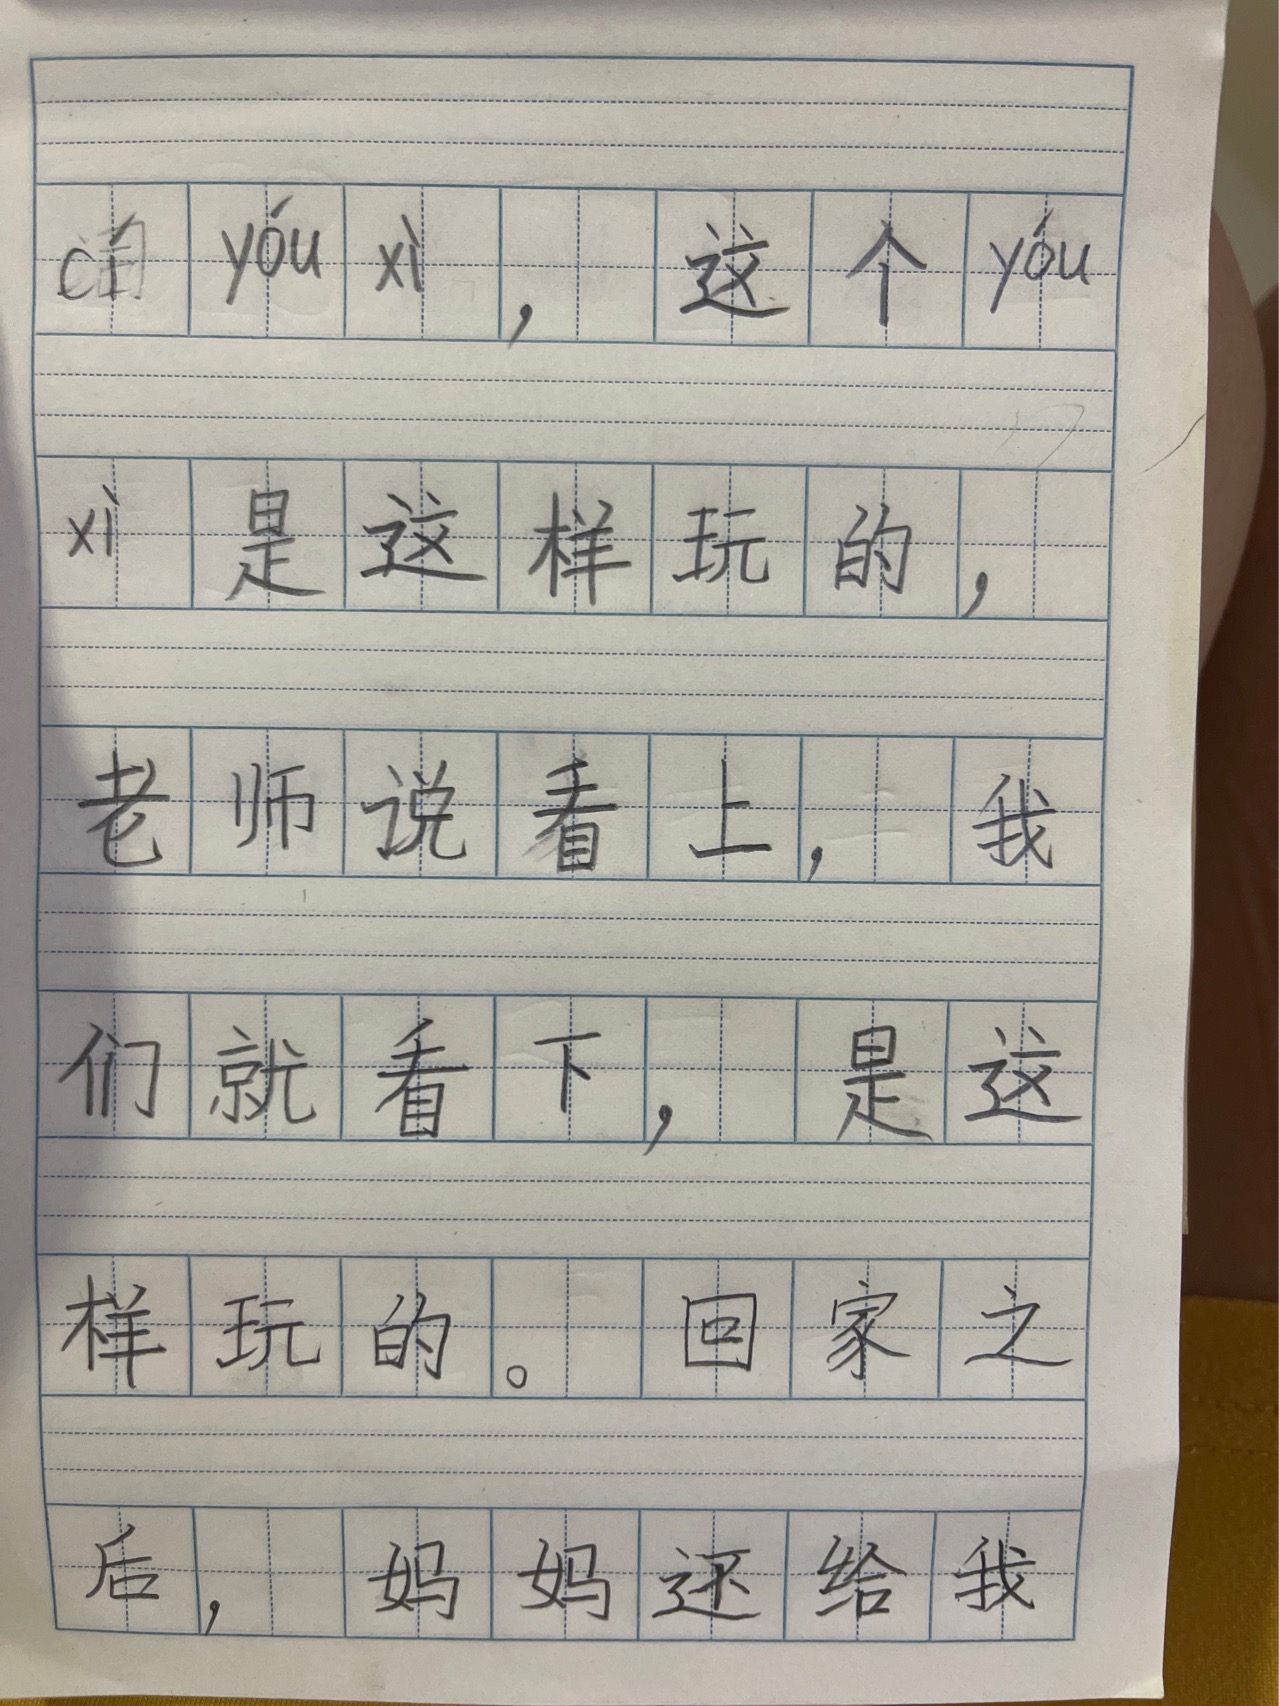 cí yóu xì，这个yóu
xì是这样玩的，
老师说看上，我
们就看下，是这
样玩的。回家之
后，妈妈还给我